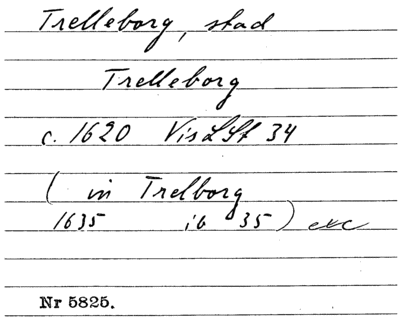 Trelleborg, stad
Trelleborg
c. 1620 VisLSt 34
( in Trelborg
1635 ib 35) exc
Nr 5825.